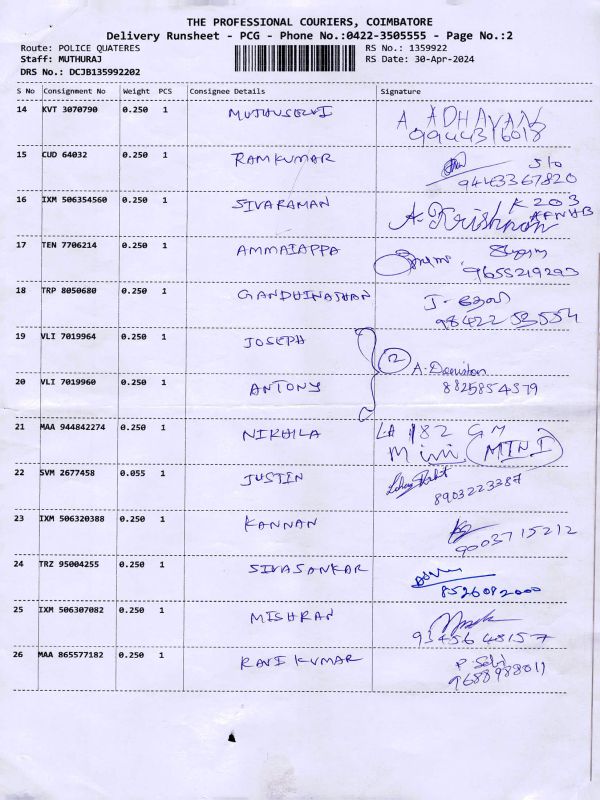 THE PROFESSIONAL COURIERS, COIMBATORE
Delivery Runsheet - PCG - Phone No.:0422-3505555 - Page No.:2
Route: POLICE QUATERES RS No.: 1359922
Staff: MUTHURAJ RS Date: 30-Apr-2024
DRS No.: DCJB135992202
S No Consignment No Weight PCS Consignee Details Signature
14 KVT 3070790 0.250 1 MUTHUSELVI A ADHAVAN
9944316018
15 CUD 64032 0.250 1 RAMKUMAR S/o
9443367820
16 IXM 506354560 0.250 1 SIVARAMAN A. Krishnan K 203
17 TEN 7706214 0.250 1 AMMAIAPPA
9655219293
18 TRP 8050680 0.250 1 GANDHINATHAN J.
98422 53554
19 VLI 7019964 0.250 1 JOSEPH
2 A. Deniston
20 VLI 7019960 0.250 1 ANTONY 8825854379
21 MAA 944842274 0.250 1 NIKHILA LA 182 GM
Mini (MINI)
22 SVM 2677458 0.055 1 JUSTIN
8903223387
23 IXM 506320388 0.250 1 KANNAN
9003715212
24 TRZ 95004255 0.250 1 SIVASANKAR
8526082000
25 IXM 506307082 0.250 1 MISHRAN
93456 48157
26 MAA 865577182 0.250 1 RAVI KUMAR P. Selvi
9688988011